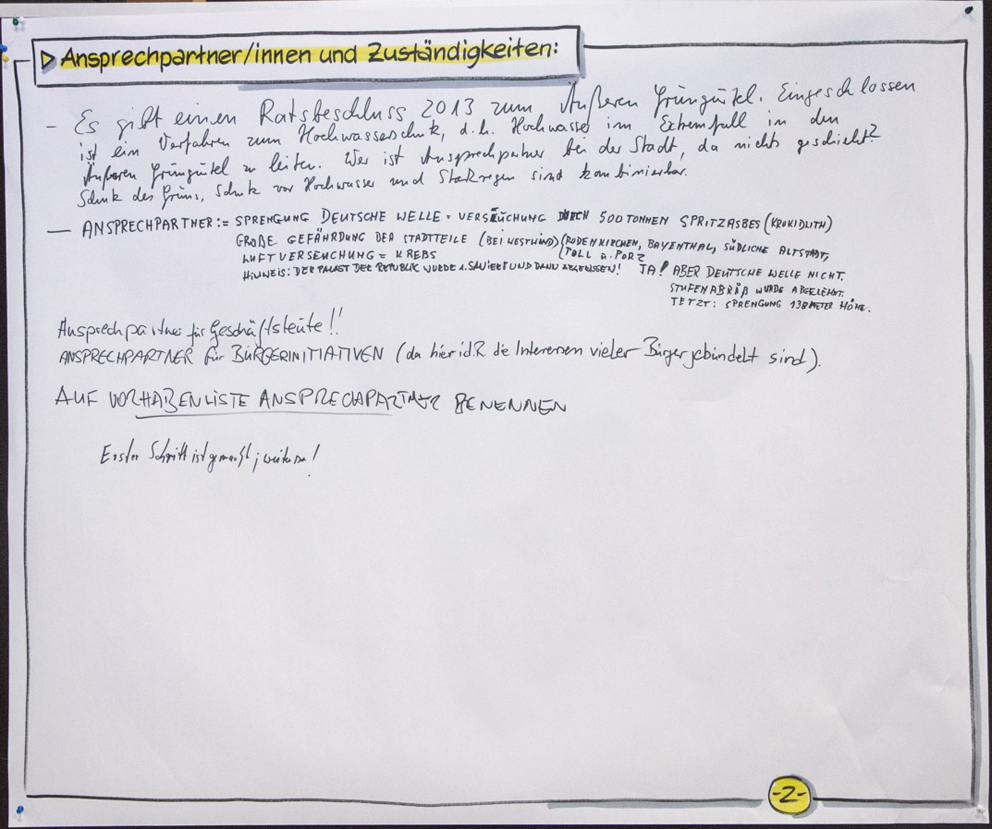 Ansprechpartner/innen und Zuständigkeiten:
- Es gibt einen Ratsbeschluss 2013 zum Äußeren Grüngürtel. Eingeschlossen
ist ein Verfahren zum Hochwasserschutz, d.h. Hochwasser im Extremfall in den
Äußeren Grüngürtel zu leiten. Wer ist Ansprechpartner bei der Stadt, da nichts geschieht?
Schutz des Grüns, Schutz vor Hochwasser und Starkregen sind kombinierbar.
— ANSPRECHPARTNER := SPRENGUNG DEUTSCHE WELLE = VERSEUCHUNG DURCH 500 TONNEN SPRITZASBES (KROKIDLITH)
GROßE GEFÄHRDUNG DER STADTTEILE (BEI WESTWIND) (RODENKIRCHEN, BAYENTHAL, SÜDLICHE ALTSTADT,
LUFTVERSEUCHUNG = KREBS (POLL u. PORZ
HINWEIS: DER PALAST DER REPUBLIK WURDE 1. SANIERT UND DANN ABGERISSEN! JA! ABER DEUTSCHE WELLE NICHT.
STUFENABRIß WURDE ABGELEHNT.
JETZT: SPRENGUNG 138 METER HÖHE.
Ansprechpartner für Geschäftsleute!!
ANSPRECHPARTNER für BÜRGERINITIATIVEN (da hier i.d.R. die Interessen vieler Bürger gebündelt sind).
AUF VORHABENLISTE ANSPRECHPARTNER BENENNEN
Erster Schritt ist gemacht; weiter so!
-2-